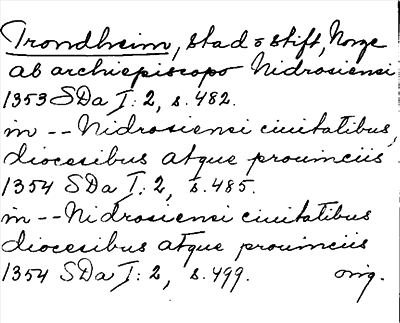 Trondheim, stad o stift, Norge
ab archiepiscopo Nidrosiensi
1353 SDa I: 2, s. 482.
in -- Nidrosiensi ciuitatibus,
diocesibus atque prouinciis
1354 SDa I: 2, s. 485.
in -- Nidrosiensi ciuitatibus
diocesibus atque prouinciis
1354 SDa I: 2, s. 499. orig.